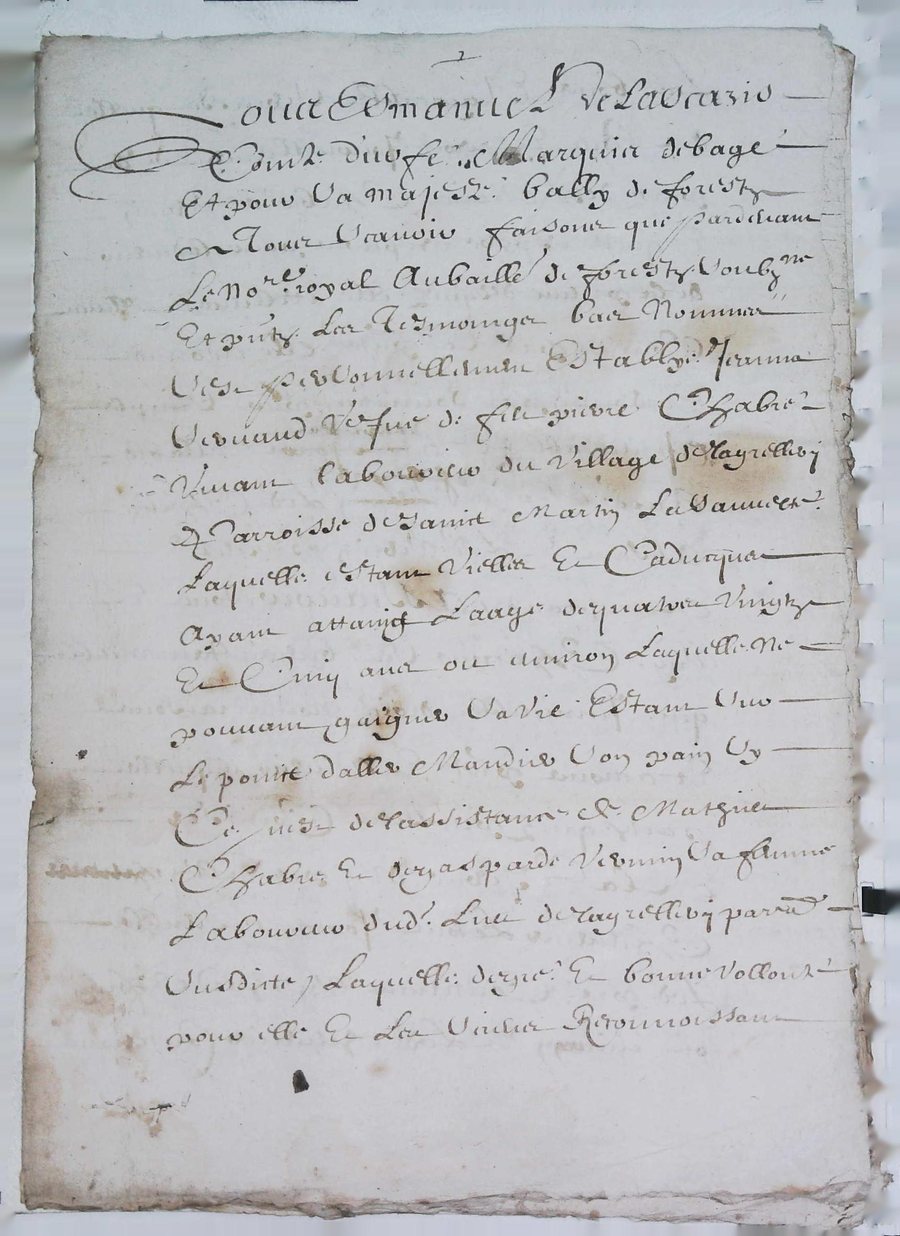 Nous Emanuel de Lascaris
Comte durfe Marquis debage
Et pour sa majeste bally de forestz
A Tous scavoir faisons que pardevant
Le Nore royal Aubaille de forestz soubzne
Et pntz Les Tesmoingz bas Nommes
sest personnellement Establye Jeanne
vefue de feu pierre Chabre
Vivant laboureur du Village de
Parroisse de sainct Martin La sauvete
Laquelle estant Vielle Et Caducque
Ayant attainct Laage de quatre Vingtz
Et Cinq ans ou environ Laquelle Ne
pouvant gaigner sa vie Estant sur
Le poinct daller Mandier son pain sy
Ce nest de lassistance de Mathieu
Chabre Et de gasparde sa femme
Laboureur dudt Lieu de parsd
susdicte Laquelle de gre Et bonne vollonte
pour elle Et Les siens Recognoissant